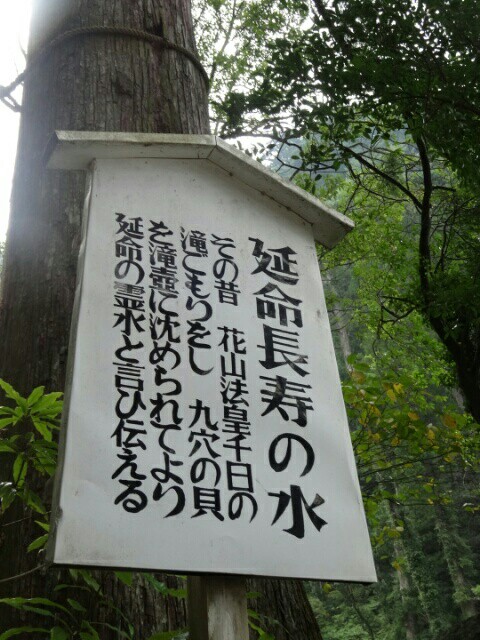 延命長寿の水
その昔 花山法皇千日の
滝ごもりをし 九穴の貝
を滝壺に沈められてより
延命の霊水と言ひ伝える